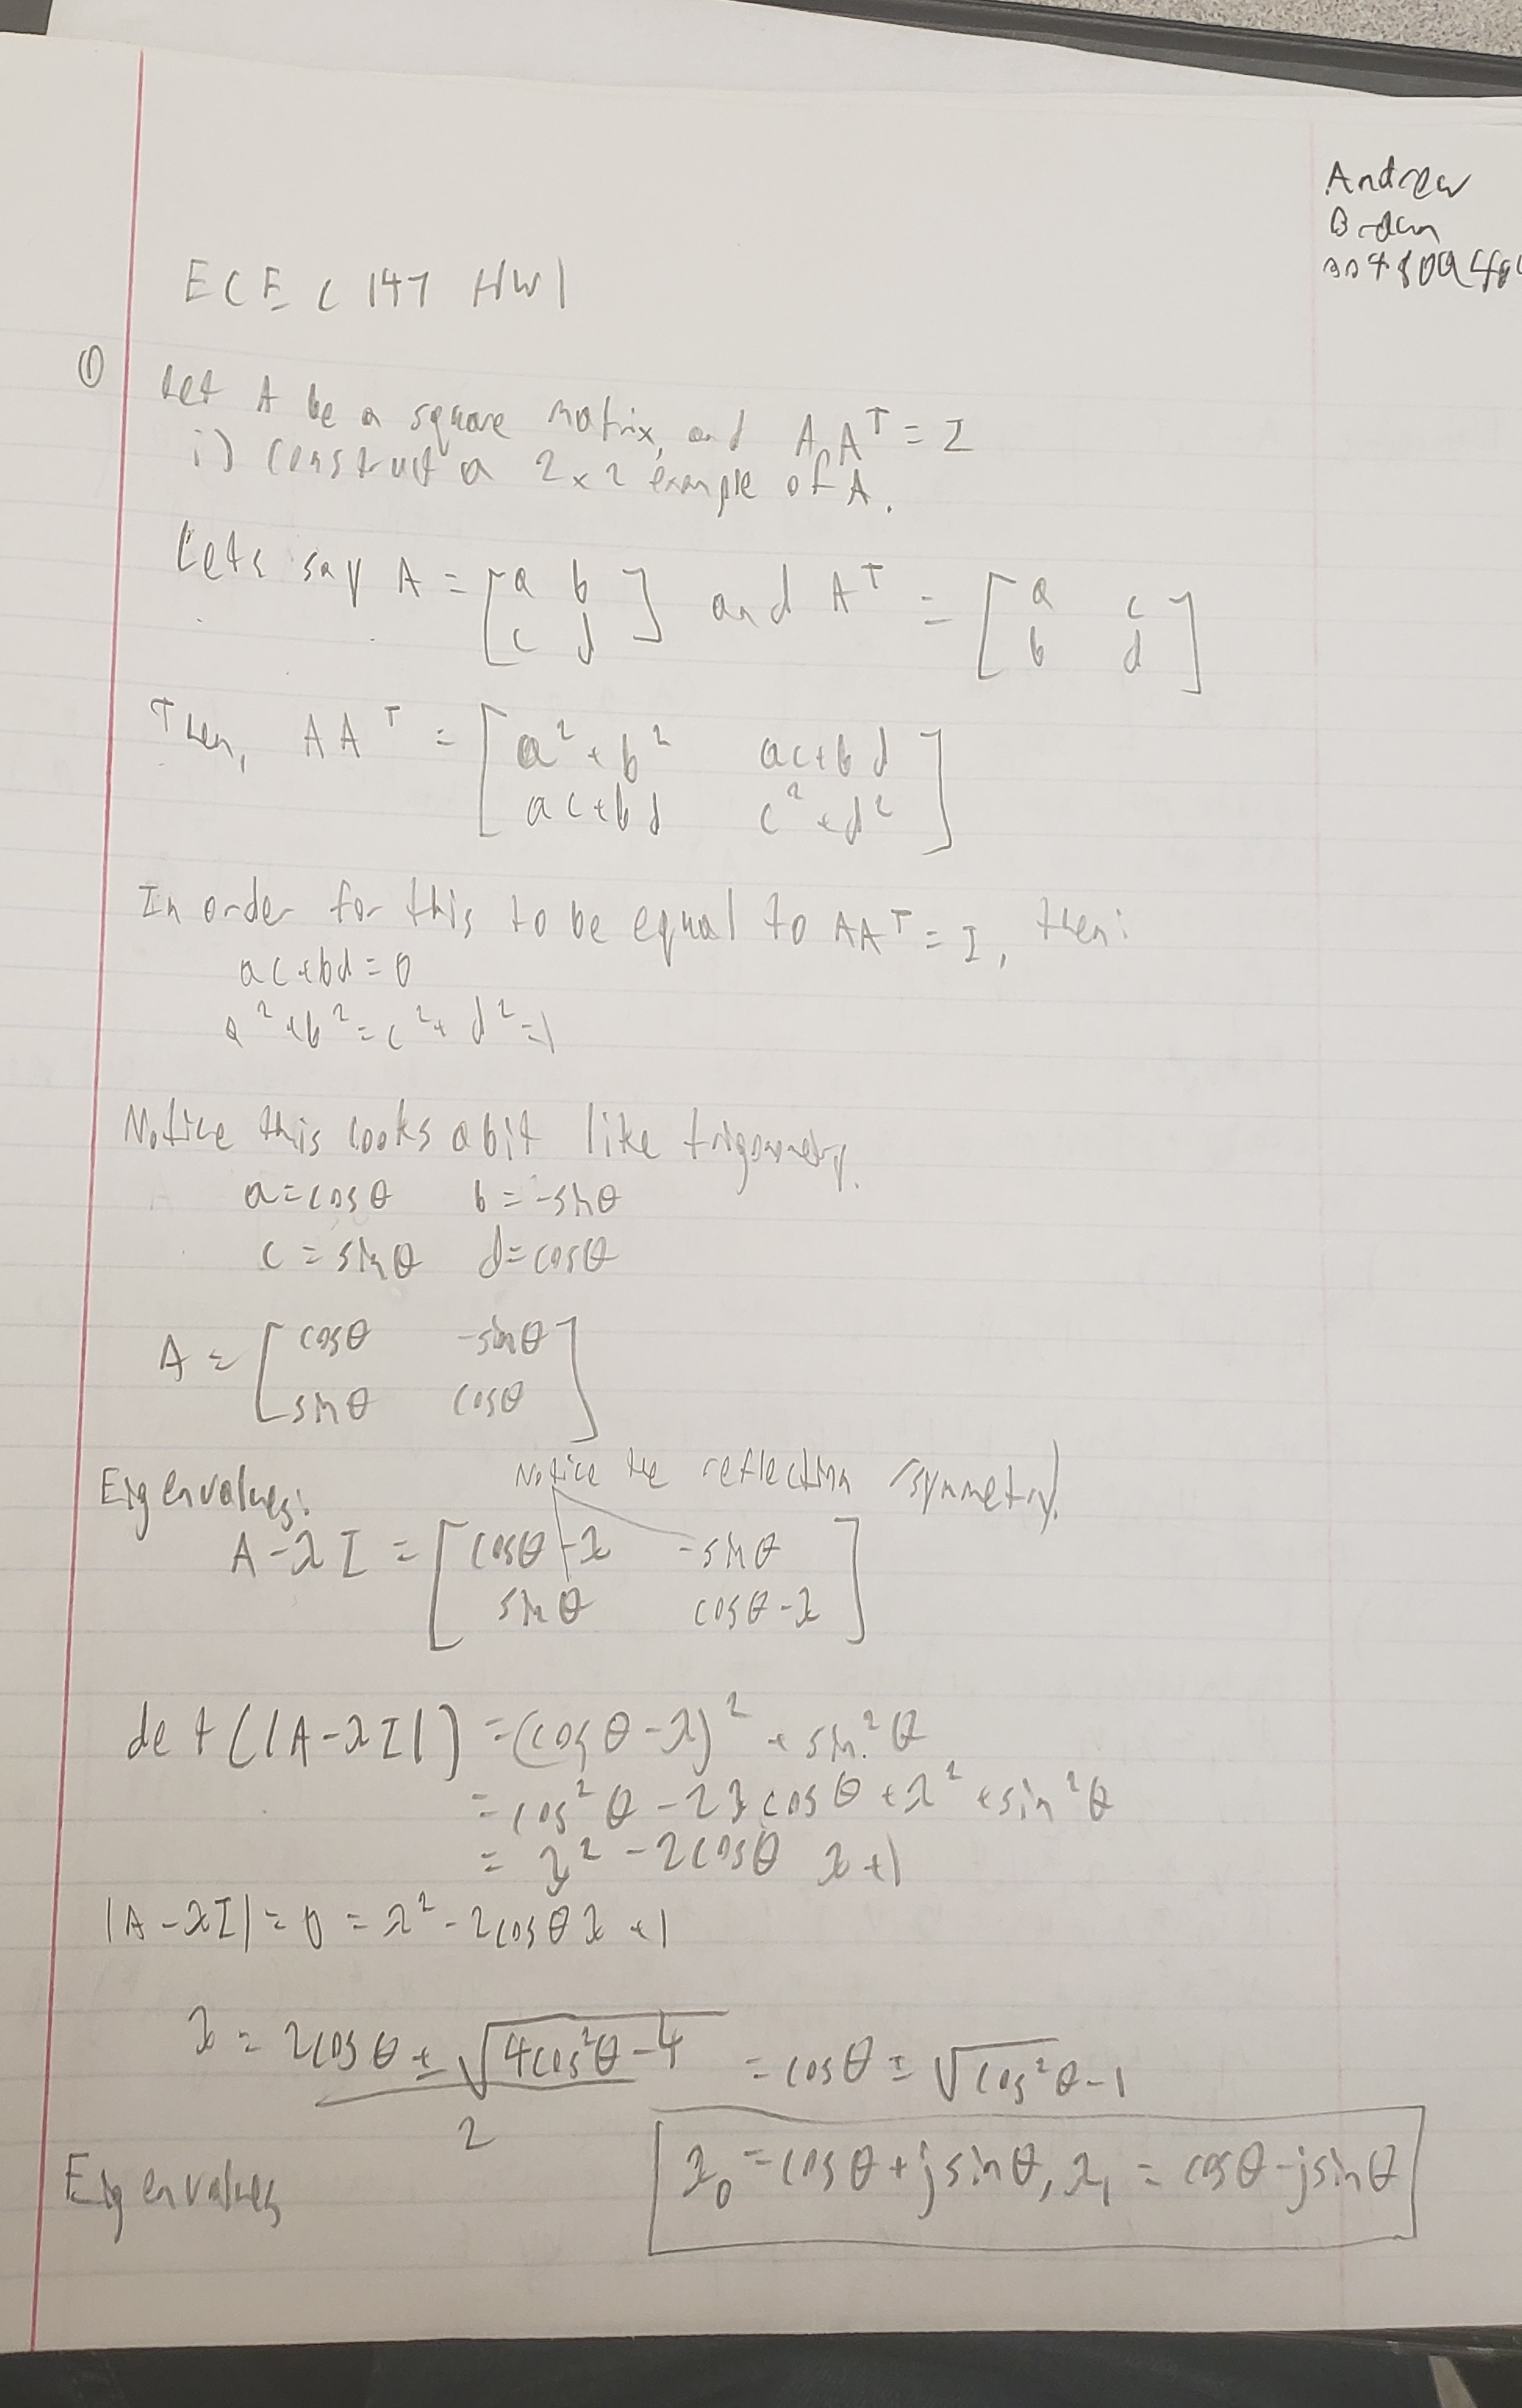 Andrew
ECE C 147 HW1
① Let A be a square matrix, and A A^T = I
i) Construct a 2×2 example of A.
Lets say A = [a b; c d] and A^T = [a c; b d]
Then, A A^T = [a²+b² ac+bd; ac+bd c²+d²]
In order for this to be equal to AA^T = I, then:
ac+bd=0
a²+b²=c²+d²=1
Notice this looks a bit like trigonometry.
a=cosθ b=-sinθ
c=sinθ d=cosθ
A = [cosθ -sinθ; sinθ cosθ]
Notice the reflection symmetry.
Eigenvalues:
A-λI = [cosθ-λ -sinθ; sinθ cosθ-λ]
det(|A-λI|) = (cosθ-λ)² + sin²θ
= cos²θ - 2λcosθ + λ² + sin²θ
= λ² - 2cosθ λ + 1
|A-λI| = 0 = λ² - 2cosθ λ + 1
λ = (2cosθ ± √(4cos²θ-4))/2 = cosθ ± √(cos²θ-1)
Eigenvalues λ₀ = cosθ + jsinθ, λ₁ = cosθ - jsinθ